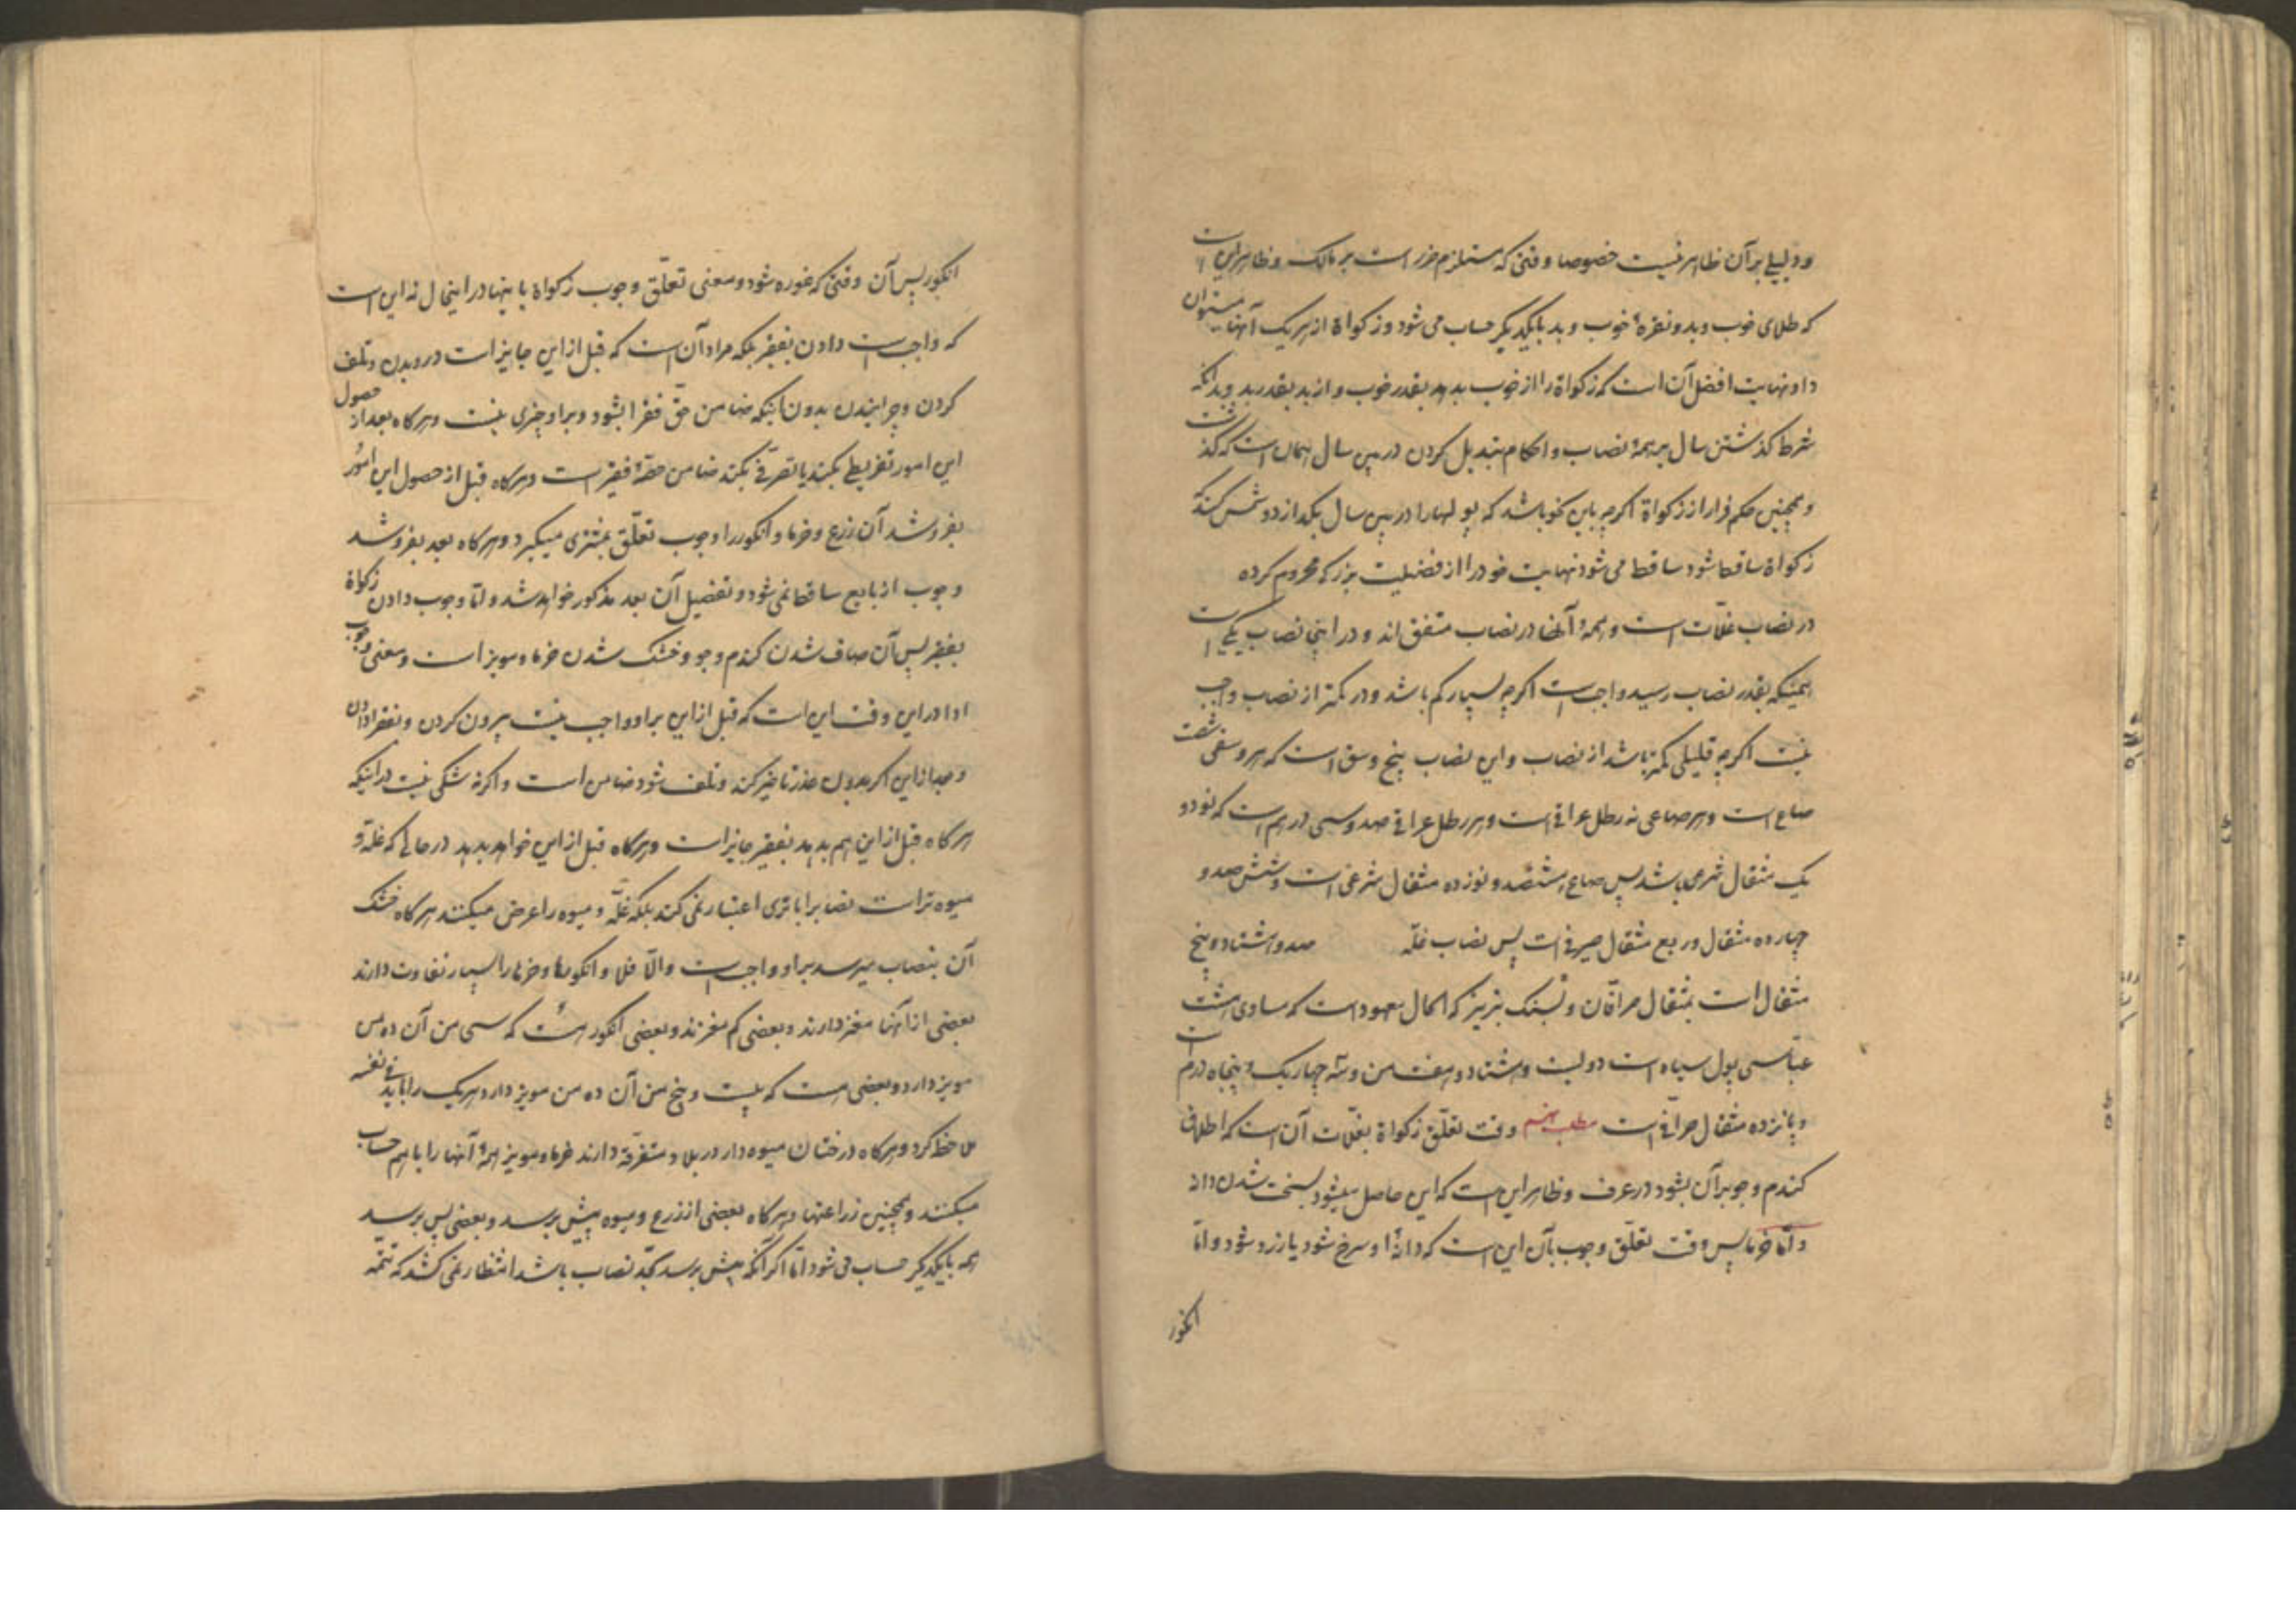 و دلیلی بر آن ظاهر نیست خصوصا وقتی که مستلزم ضرر است بر مالک و ظاهر این است
که طلای خوب و بد و نقرهٔ خوب و بد با یکدیگر حساب می شود و زکواة از هر یک آنها میتوان
داد نهایت افضل آن است که زکواة را از خوب بدهد بقدر خوب و از بد بقدر بد و بدانکه
شرط کذشتن سال بر همهٔ نصاب و احکام تبدیل کردن در بین سال همان است که کذشت
و همچنین حکم فرار از زکواة اکرچه باین نحو باشد که پولها را در بین سال
زکواة ساقط شود ساقط می شود نهایت خود را از فضیلت بزرکی محروم کرده
در نصاب غلّات است و همهٔ آنها در نصاب متفق اند و در اینها نصاب یکی است
همینکه بقدر نصاب رسید واجب است اکرچه بسیار کم باشد و در کمتر از نصاب واجب
نیست اکرچه قلیلی کمتر باشد از نصاب و این نصاب پنج وسق است که هر وسقی شصت
صاع است و هر صاعی نه رطل عراقی است و هر رطل عراقی صد و سی درهم است که نود و
یک مثقال شرعی باشد پس صاع هشتصد و نوزده مثقال شرعی است و شش صد و
چهارده مثقال و ربع مثقال صیرفی است پس نصاب غلّه صد و هشتاد و پنج
مثقال است بمثقال صرافان و بسنک تبریز که الحال معهود است که مساوی هشت
عبّاسی پول سیاه است دویست و هشتاد و هفت من و سه چهاریک و پنجاه درم است
و پانزده مثقال صرافی است مطلب پنجم وقت تعلّق زکواة بغلّات آن است که اطلاق
کندم و جو بر آن بشود در عرف و ظاهر این است که این حاصل میشود بسخت شدن دانه
و امّا خرما پس وقت تعلّق وجوب بآن این است که دانهٔ او سرخ شود یا زرد شود و امّا
انکور
انکور پس آن وقتی که غوره شود و معنی تعلّق وجوب زکواة باینها در اینحال نه این است
که واجب است دادن بفقیر بلکه مراد آن است که قبل از این جایز است درویدن و تلف
کردن و چرانیدن بدون اینکه ضامن حقّ فقرا بشود و بر او چیزی نیست و هرکاه بعد از حصول
این امور تفریطی بکند یا تصرّفی بکند ضامن حصّهٔ فقیر است و هرکاه قبل از حصول این امور
بفروشد آن زرع و خرما و انکور را وجوب تعلّق بمشتری میکیرد و هرکاه بعد بفروشد
وجوب از بایع ساقط نمی شود و تفصیل آن بعد مذکور خواهد شد و امّا وجوب دادن زکواة
بفقیر پس آن صاف شدن کندم و جو و خشک شدن خرما و مویز است و معنی وجوب
ادا در این وقت این است که قبل از این بر او واجب نیست بیرون کردن و بفقرا دادن
و بعد از این اکر بدون عذر تاخیر کند و تلف شود ضامن است و اکرنه شکی نیست در اینکه
هرکاه قبل از این هم بدهد بفقیر جایز است و هرکاه قبل از این خواهد بدهد در حالی که غلّه و
میوه تر است نصاب را با تری اعتبار نمی کند بلکه غلّه و میوه را عرض میکنند هرکاه خشک
آن بنصاب میرسد بر او واجب است والّا فلا و انکورها و خرماها را بسیار تفاوت دارند
بعضی از آنها مغز دارند و بعضی کم مغزند و بعضی انکور هست که سی من آن ده من
مویز دارد و بعضی هست که بیست و پنج من آن ده من مویز دارد هر یک را باید فی نفسه
ملاحظه کرد و هرکاه درختان میوه دار در بلاد متفرّقه دارند خرما و مویز همهٔ آنها را با هم حساب
میکنند و همچنین زراعتها و هرکاه بعضی از زرع و میوه پیش برسد و بعضی پس برسد
همه با یکدیکر حساب می شود امّا اکر آنکه پیش برسد بحدّ نصاب باشد انتظار نمی کشد که تتمّه